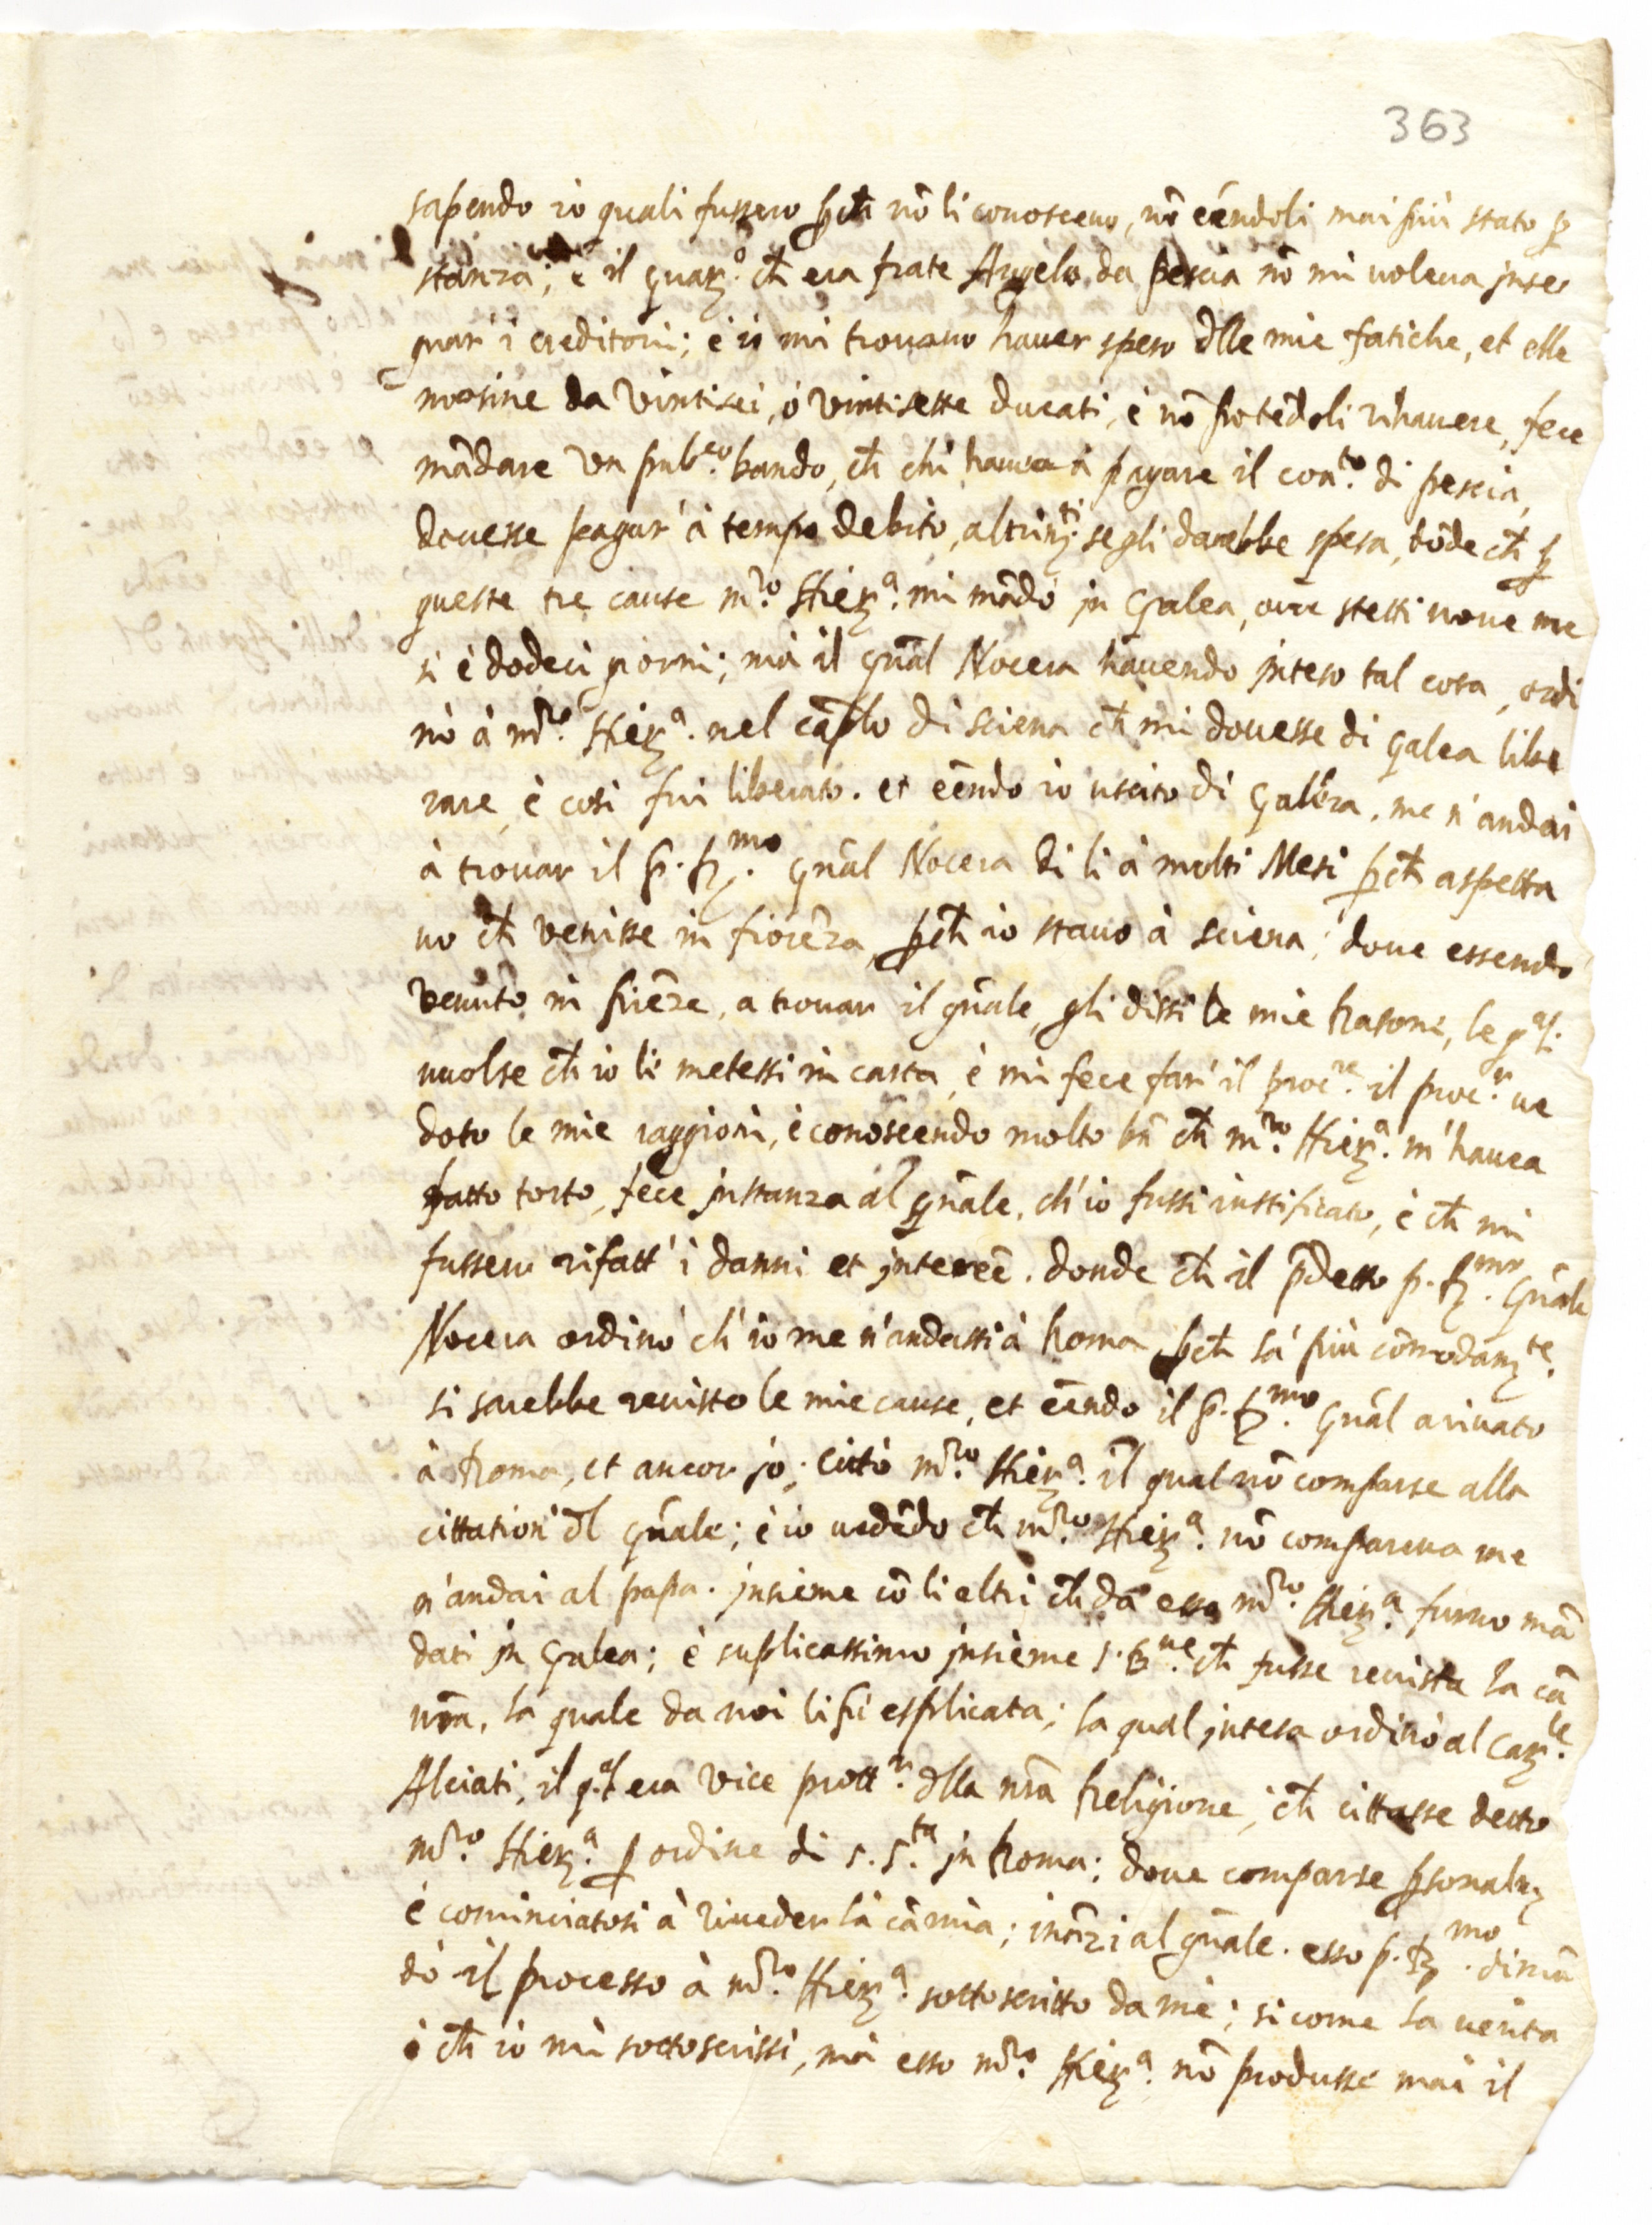 363
sapendo io quali fussero ꝑch̃ nõ li conosceuo, nõ eẽndoli mai piu stato ꝑ
stanza; è il guar.º ch̃ era frate Angelo da pescia nõ mi uoleua inse
gnar' i creditori; è io mi trouauo hauer speso d̃lle mie fatiche, et elle
mosine da vintisei, ò vintisette ducati, è nõ potẽdoli rihauere, fece
mãdare vn pub.co bando, ch̃ chi haueua à pagare il con.to di pescia,
douesse pagar' à tempo debito, altrim.ti se gli darebbe spesa, dõde ch̃ ꝑ
queste tre cause m.ro Hier.a mi mãdò in Galea, oue stetti noue me
si è dodeci giorni; mà il gñal Nocera hauendo inteso tal cosa, ordi
nò à m.ro Hier.a nel cap̃lo di sciena ch̃ mi douesse di galea libe
rare, è cosi fui liberato. et eẽndo io uscito di Galera, me n'andai
à trouar il p. R.mo gñal Nocera di li à molti Mesi ꝑch̃ aspetta
uo ch̃ venisse in fiorẽza, ꝑch̃ io stauo à sciena; doue essendo
venuto in fiẽze, a trouar il gñale, gli dissi le mie Rasone, le q.ali
uuolse ch̃ io le metessi in carta, è mi fece far' il proc.re il proc.r ue
doto le mie raggioni, è conoscendo molto bñ ch̃ m.ro Hier.a m'hauea
fatto torto, fece instanza al gñale, ch'io fussi iustificato, è ch̃ mi
fussero rifatt' i danni et intereẽ. donde ch̃ il p̃detto p. R.mo Gñale
Nocera ordinò ch'io me n'andassi à Roma ꝑch̃ là più com̃odam.te
si sarebbe reuisto le mie cause, et eẽndo il p. R.mo Gñal ariuato
à Roma, et ancor io; cittò m.ro Hier.a il qual nõ comparse alla
cittation' d̃l gñale; è io uedẽdo ch̃ m.ro Hier.a nõ compareua me
n'andai al papa. insieme cõ li eltri ch̃ da esso m.ro Hier.a furno mã
dati in Galea; è suplicassimo insieme s. B.ne ch̃ fusse reuista la cã
nr̃a, la quale da noi li fù esplicata; la qual intesa ordinò al Car.le
Alciati, il q.al era vice prott.r d̃lla nr̃a Religione, ch̃ cittasse detto
m.ro Hier.a ꝑ ordine di s. s.ta in Roma; doue comparse ꝑsonalm.
è cominciatosi à riueder la cã mia; inãzi al gñale. esso p. R.mo dimã
dò il processo à m.ro Hier.a sottoscritto da me; si come la uerita
è ch̃ io mi sottoscrissi, mà esso m.ro Hier.a nõ produsse mai il